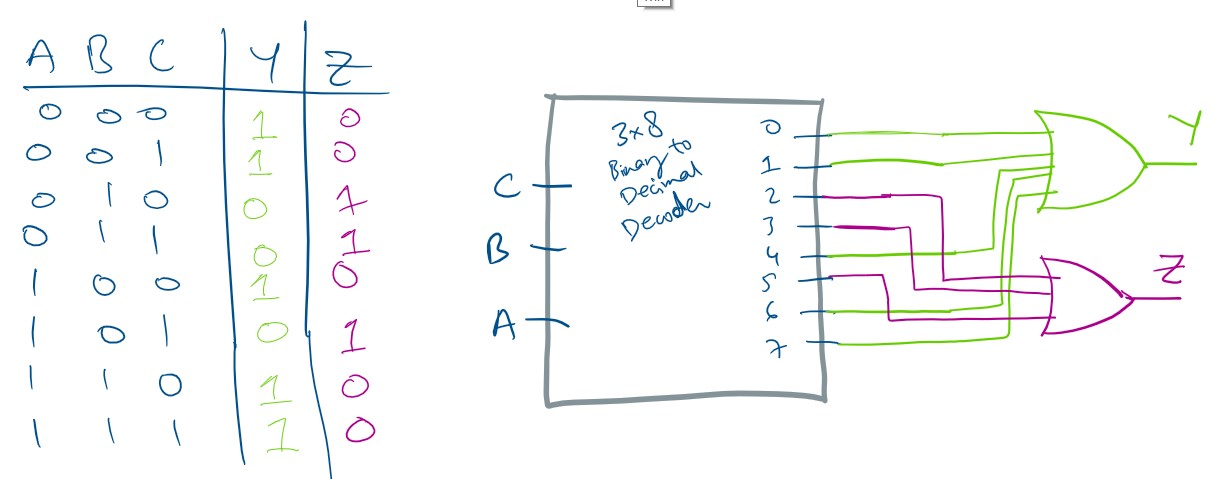 A B C Y Z
0 0 0 1 0
0 0 1 1 0
0 1 0 0 1
0 1 1 0 1
1 0 0 1 0
1 0 1 0 1
1 1 0 1 0
1 1 1 1 0
3x8
Binary to
Decimal
Decoder
C
B
A
0
1
2
3
4
5
6
7
Y
Z